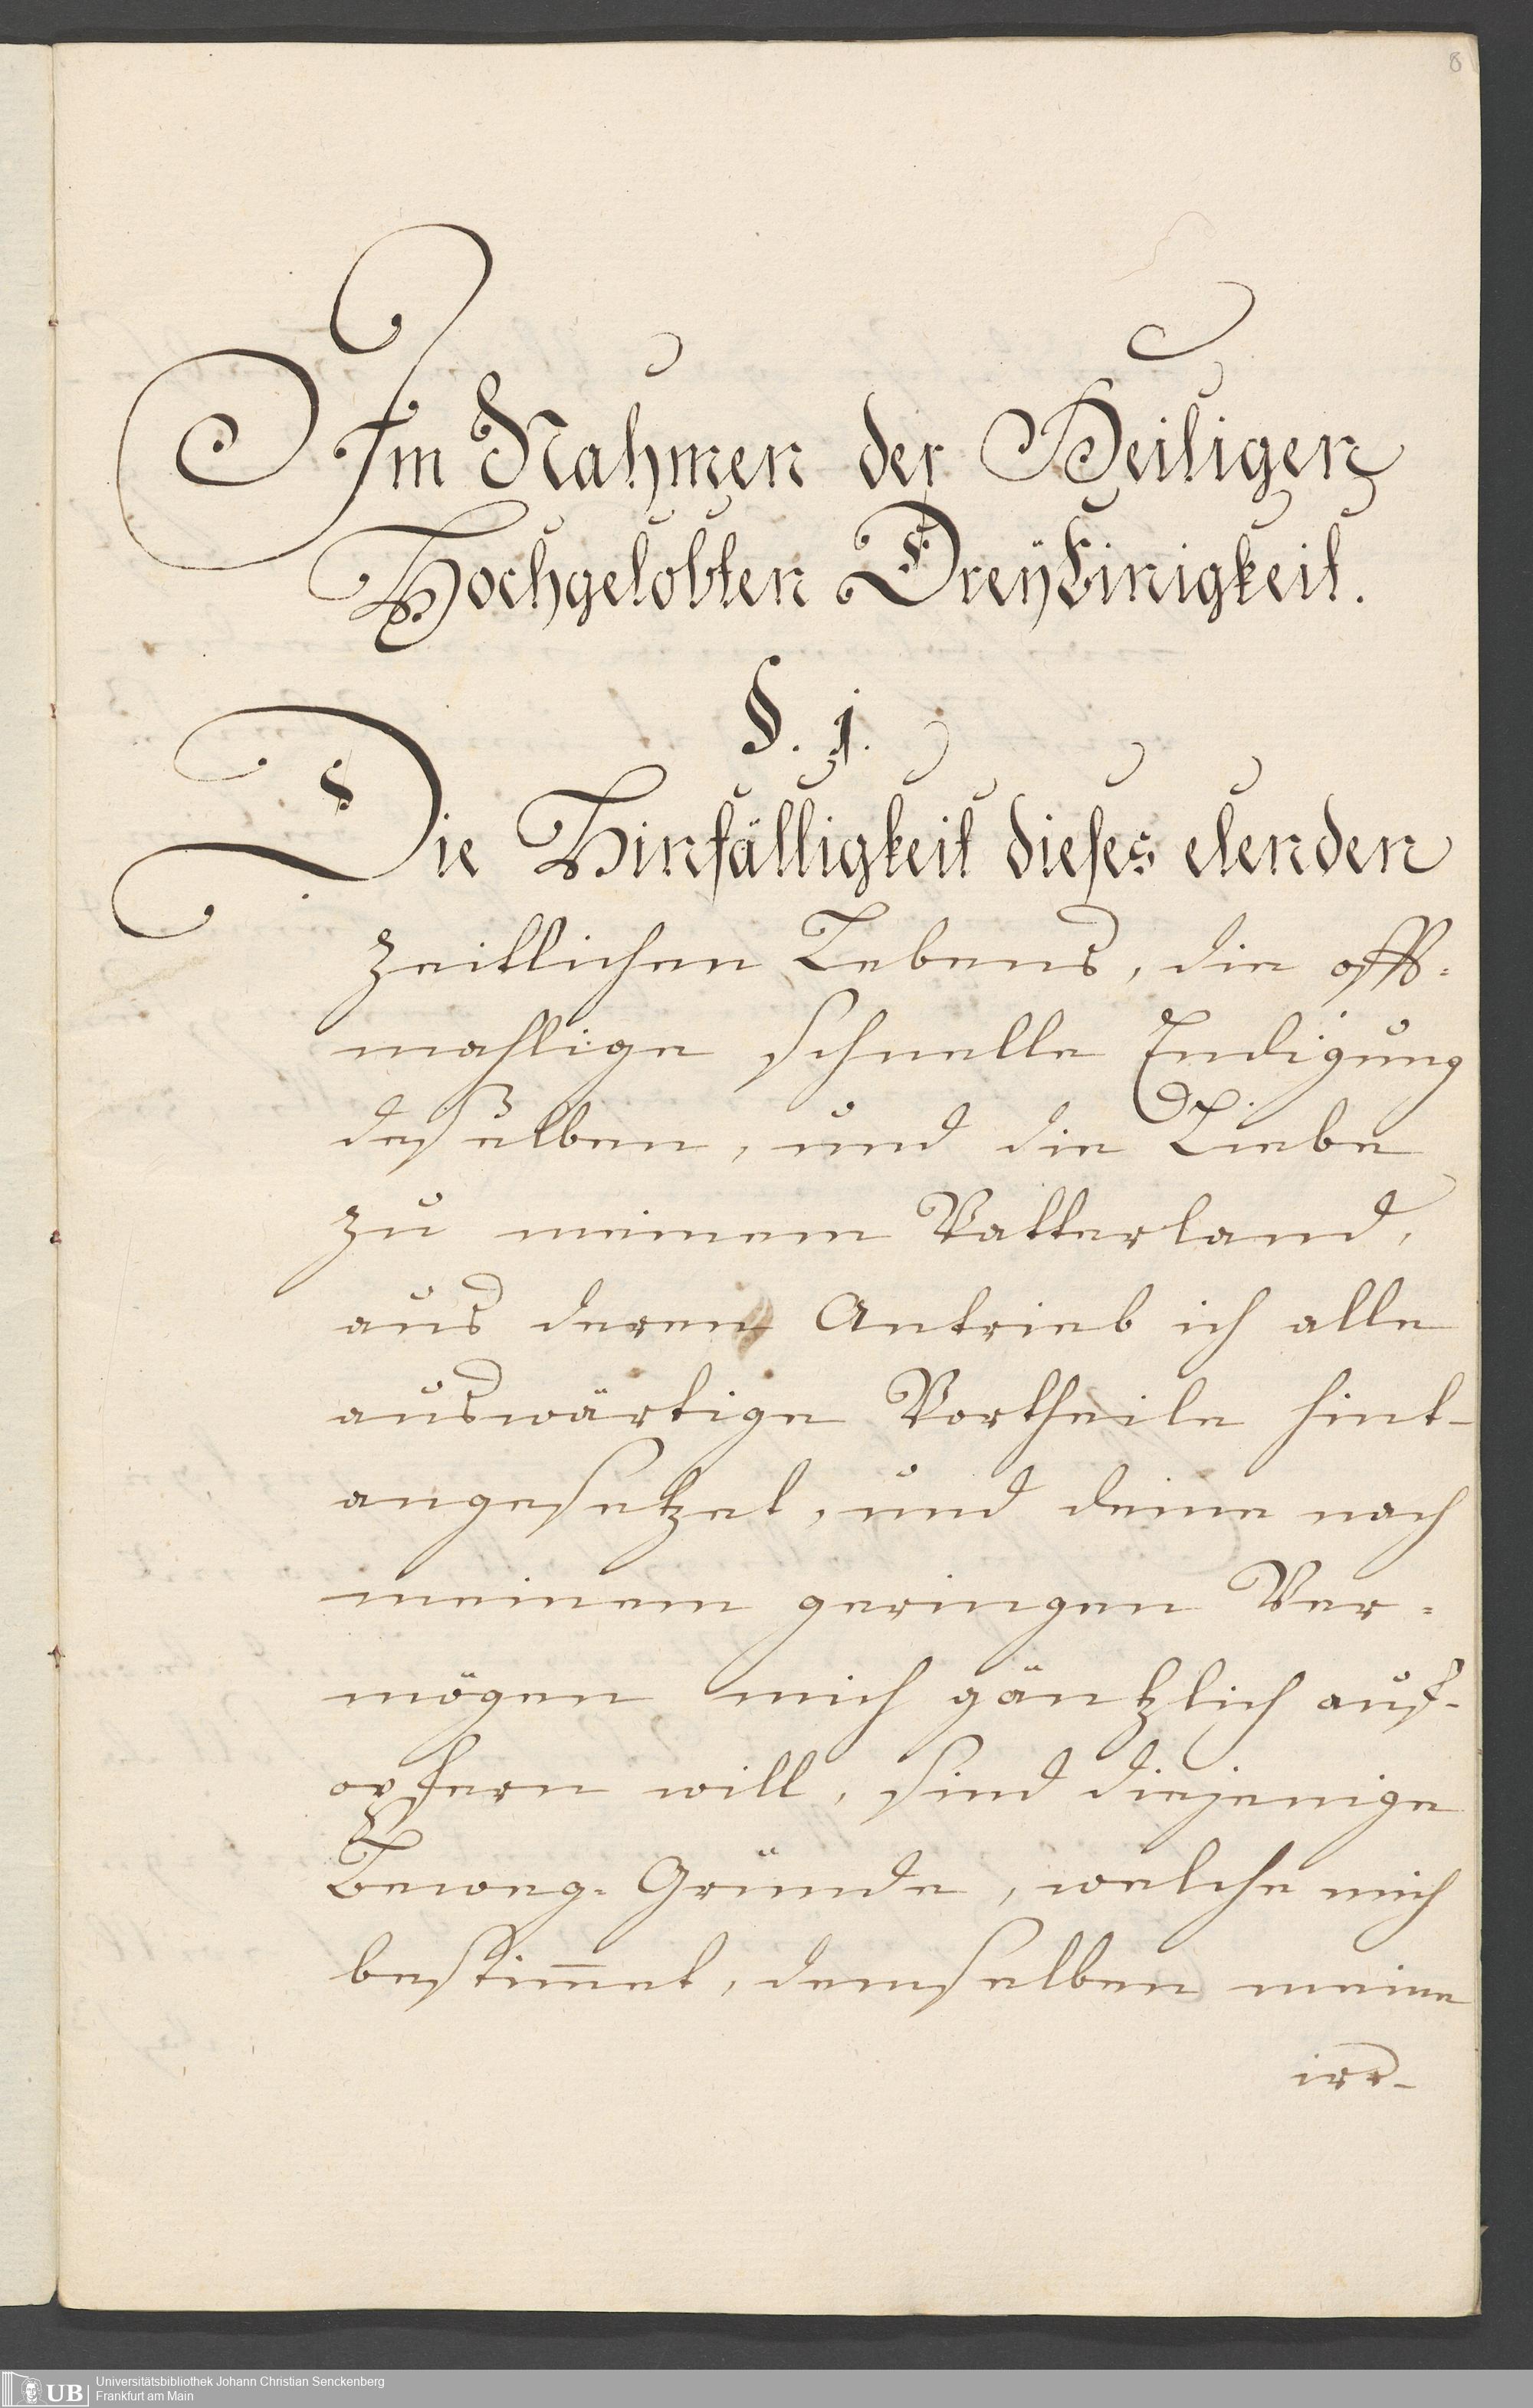 8
Im Nahmen der Heiligen
Hochgelobten DreyEinigkeit.
§. 1.
Die Hinfälligkeit dieses elenden
zeitlichen Lebens, die offt=
mahlige schnelle Endigung
deßelben, und die Liebe
zu meinem Vatterland,
aus deren Antrieb ich alle
auswärtige Vortheile hint-
angesetzet, und deme nach
meinem geringen Ver=
mögen mich gäntzlich auf-
opfern will, sind diejenige
Beweg=Gründe, welche mich
bestim̄et, demselben meine
irr-
UB
Universitätsbibliothek Johann Christian Senckenberg
Frankfurt am Main